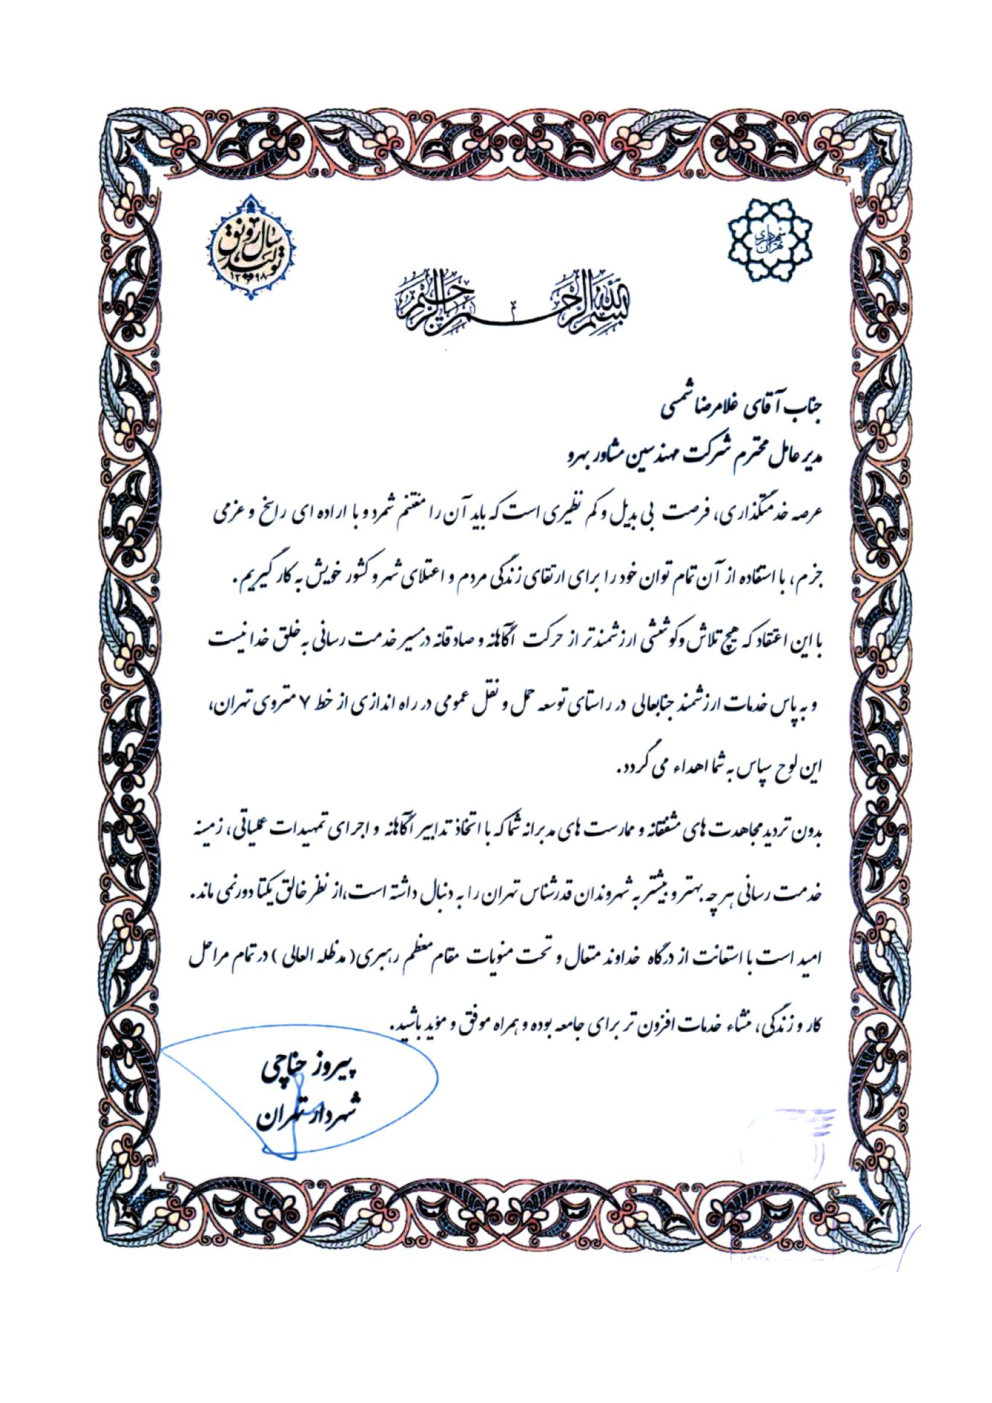 شهرداری تهران
سال رونق تولید
۱۳۹۸
بسم الله الرحمن الرحیم
جناب آقای غلامرضا شمسی
مدیر عامل محترم شرکت مهندسین مشاور بهرو
عرصه خدمتگذاری، فرصت بی بدیل و کم نظیری است که باید آن را مغتنم شمرد و با اراده ای راسخ و عزمی
جزم، با استفاده از آن تمام توان خود را برای ارتقای زندگی مردم و اعتلای شهر و کشور خویش به کار گیریم.
با این اعتقاد که هیچ تلاش و کوششی ارزشمند تر از حرکت آگاهانه و صادقانه در مسیر خدمت رسانی به خلق خدا نیست
و به پاس خدمات ارزشمند جنابعالی در راستای توسعه حمل و نقل عمومی در راه اندازی از خط ۷ متروی تهران،
این لوح سپاس به شما اهداء می گردد.
بدون تردید مجاهدت های مشفقانه و ممارست های مدبرانه شما که با اتخاذ تدابیر آگاهانه و اجرای تمهیدات عملیاتی، زمینه
خدمت رسانی هر چه بهتر و بیشتر به شهروندان قدرشناس تهران را به دنبال داشته است، از نظر خالق یکتا دور نمی ماند.
امید است با استعانت از درگاه خداوند متعال و تحت منویات مقام معظم رهبری( مدظله العالی ) در تمام مراحل
کار و زندگی، منشاء خدمات افزون تر برای جامعه بوده و همراه موفق و مؤید باشید.
پیروز حناچی
شهردار تهران